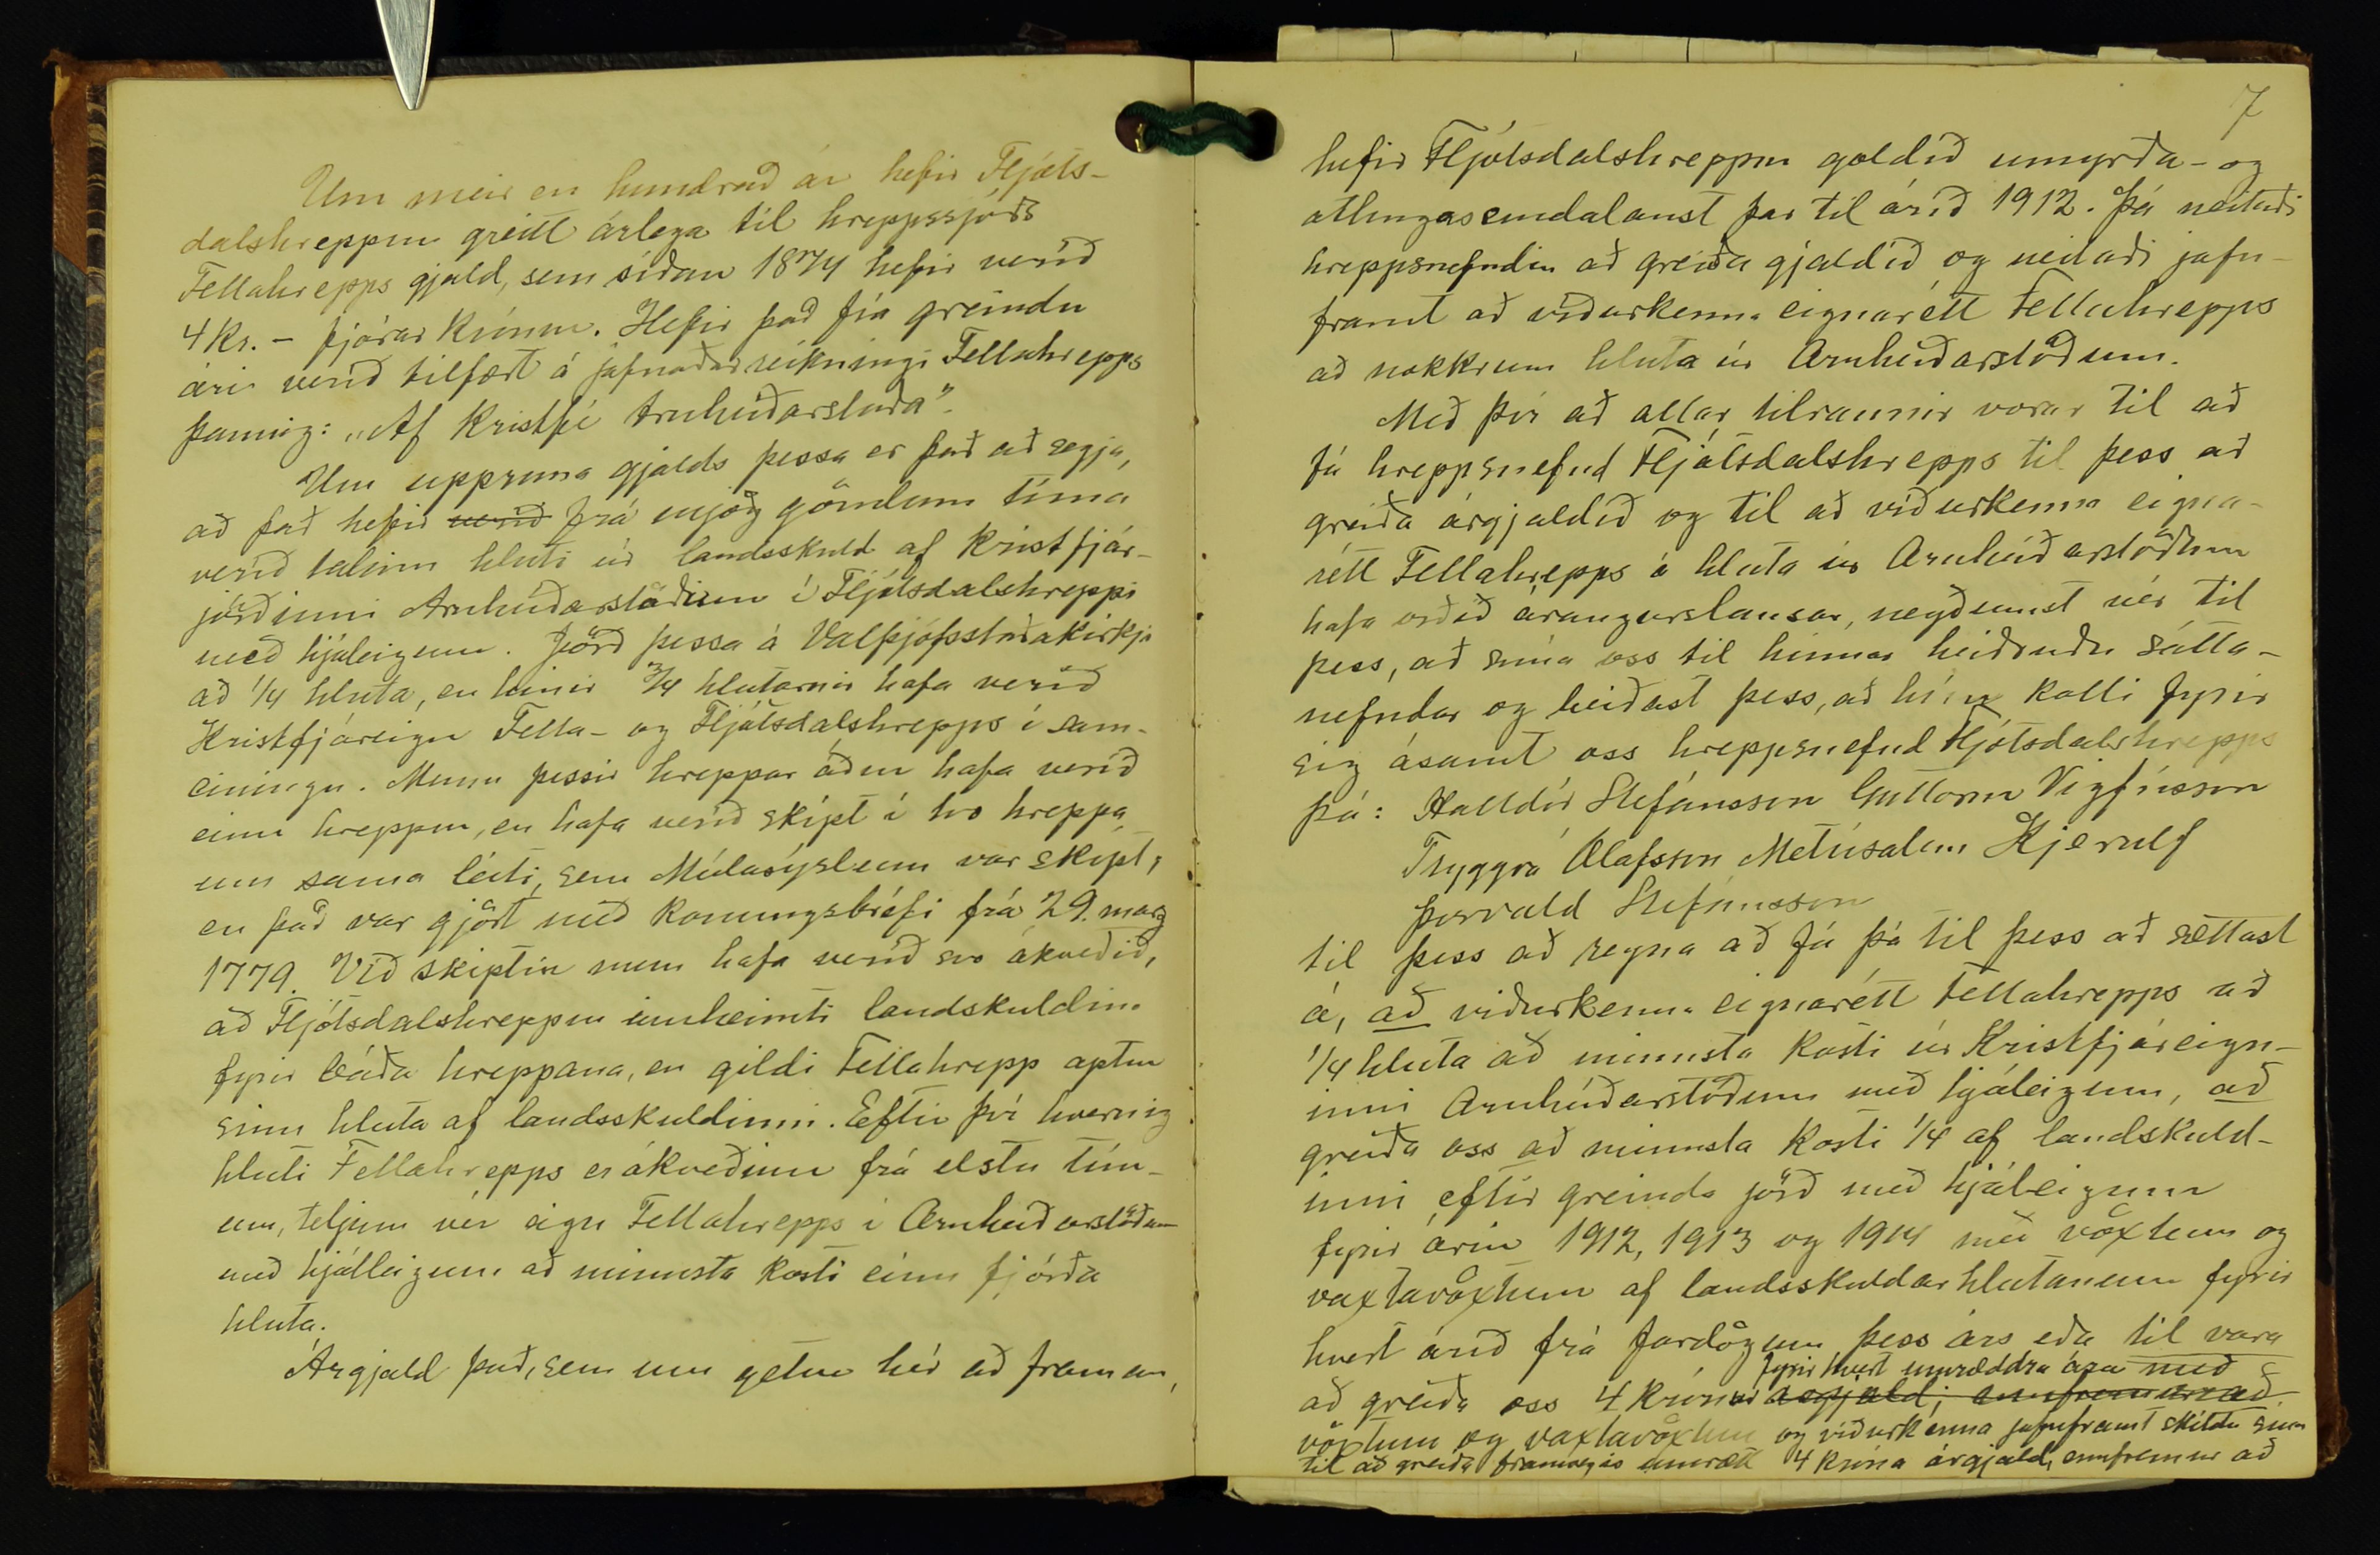 Um meir en hundrað ár hefir Fljóts-
dalshreppur greitt árlega til hreppssjóðs
Fellahrepps gjald, sem síðan 1874 hefir verið
4 kr. - fjórar krónur. Hefir það frá greindu
ári verið tilfært á jafnaðarreikningi Fellahrepps
þannig: „Af Kristfé Arnheiðarstaða".
Um uppruna gjalds þessa er það að segja,
að það hefir verið frá mjög gömlum tíma
verið talinn hluti úr landsskuld af Kristfjár-
jörðinni Arnheiðarstöðum í Fljótsdalshreppi
með hjáleigum. Jörð þessa á Valþjófsstaðakirkja
að 1/4 hluta, en hinir 3/4 hlutarnir hafa verið
Kristfjáreign Fella- og Fljótsdalshrepps í sam-
einingu. Munu þessir hreppar áður hafa verið
einn hreppur, en hafa verið skipt í tvo hreppa
um sama leiti, sem Múlasýslum var skipt,
en það var gjört með konungsbréfi frá 29. marz
1779. Við skiptin mun hafa verið svo ákveðið,
að Fljótsdalshreppur innheimti landskuldina
fyrir báða hreppana, en gildi Fellahrepp aptur
sinn hluta af landsskuldinni. Eftir því hvernig
hluti Fellahrepps er ákveðinn frá elstu tím-
um, teljum vér eign Fellahrepps í Arnheiðarstöðum
með hjálleigum að minnsta kosti einn fjórða
hluta.
Árgjald það, sem um getur hér að framan,
7
hefir Fljótsdalshreppur goldið umyrða- og
athugasemdalaust þar til árið 1912. Þá neitaði
hreppsnefndin að greiða gjaldið og neitaði jafn-
framt að viðurkenna eignarétt Fellahrepps
að nokkrum hluta úr Arnheiðarstöðum.
Með því að allar tilraunir vorar til að
fá hreppsnefnd Fljótsdalshrepps til þess að
greiða árgjaldið og til að viðurkenna eigna-
rétt Fellahrepps á hluta úr Arnheiðarstöðum
hafa orðið árangurslausar, neyðumst vér til
þess, að snúa oss til hinnar heiðruðu sátta-
nefndar og beiðast þess, að hún kalli fyrir
sig ásamt oss hreppsnefnd Fljótsdalshrepps
þá: Halldór Stefánsson Guttorm Vigfússon
Tryggva Ólafsson Metúsalem Kjerulf
Þorvald Stefánsson
til þess að reyna að fá þá til þess að sættast
á, að viðurkenna eignarétt Fellahrepps að
1/4 hluta að minnsta kosti úr Kristfjáreign-
inni Arnheiðarstöðum með hjáleigum, að
greiða oss að minnsta kosti 1/4 af landskuld-
inni eftir greinda jörð með hjáleigum
fyrir árin 1912, 1913 og 1914 með vöxtum og
vaxtavöxtum af landsskuldarhlutanum fyrir
hvert árið frá fardögum þess árs eða til vara
fyrir hvert umræddra ára með
að greiða oss 4 krónur árgjald; ennfremur að
vöxtum og vaxtavöxtum og viðurkenna jafnframt skildu sína
til að greiða framvegis umrætt 4 króna árgjald, ennfremur að